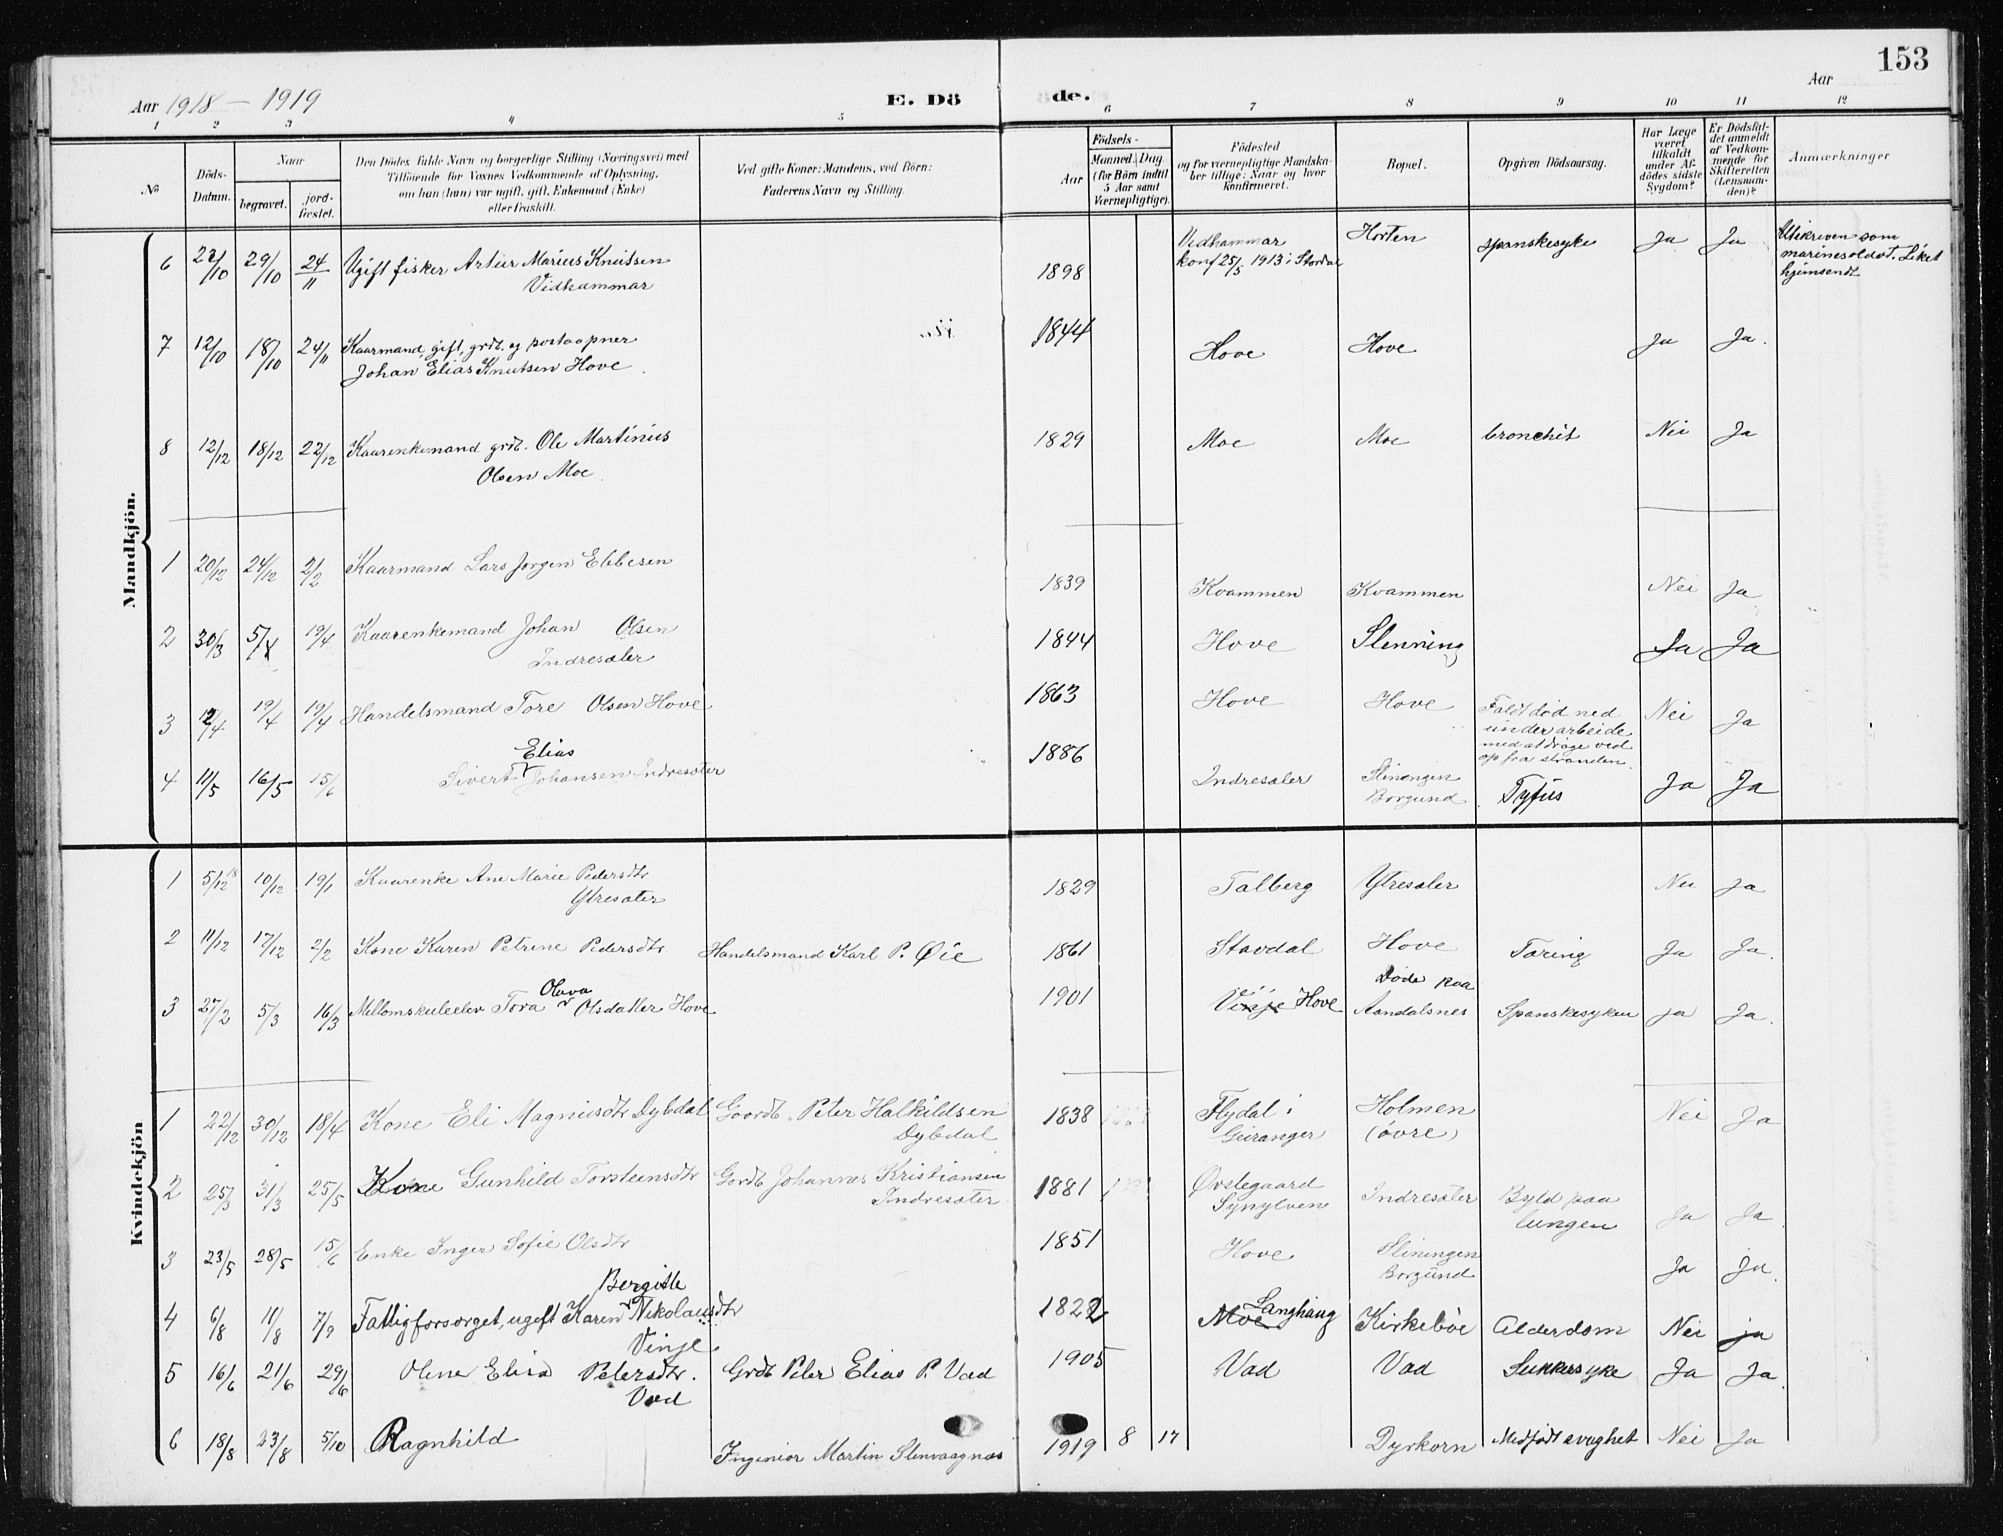 153
Aar 1918 – 1919 E. Dö de. Aar
1 2 3 4 5 6 7 8 9 10 11 12
No
Döds-Datum.
Naar
begravet.
jord-fæstet.
Den Dödes fulde Navn og borgerlige Stilling (Næringsvei) med
Tilföiende for Voxnes Vedkommende af Oplysning,
om han (hun) var ugift, gift, Enkemand (Enke)
eller fraskilt.
Ved gifte Koner: Mandens, ved Börn:
Faderens Navn og Stilling.
Födsels-
Aar
Maaned. Dag.
(for Börn indtil
5 Aar samt
Værnepligtige).
Födested
og for værnepligtige Mandska-
ber tillige: Naar og hvor
konfirmeret.
Bopæl.
Opgiven Dödsaarsag.
Har Læge
været
tilkaldt
under Af-
dödes sidste
Sygdom?
Er Dödsfal-
det anmeldt
af Vedkom-
mende for
Skifteretten
(Lensman-
den)?
Anmærkninger
Mandkjön.
6 22/10 29/10 24/11 Ugift fisker Artur Marius Knutsen 1898 Vidhammar Horten spanskesyke Ja Ja Utskreven som
Vidhammar konf 25/5 1913 i Stordal marinesoldat. Liket
hjemsendt
7 12/10 18/10 24/11 Kaarmand, gift, grdb. og postaapner 1844 Hove Hove Ja Ja.
Johan Elias Knutsen Hove.
8 12/12 18/12 22/12 Kaarenkemand grdb. Ole Martinius 1829 Moe Moe bronchit Nei Ja
Olsen Moe.
1 20/12 24/12 2/2 Kaarmand Lars Jørgen Ebbesen 1839 Kvammen Kvammen Nei Ja
2 30/3 5/4 19/4 Kaarenkemand Johan Olsen 1844 Hove Ja Ja
Indresæter
3 12/4 19/4 19/4 Handelsmand Tore Olsen Hove 1863 Hove Hove Faldt død ned Nei Ja
under arbeide
med at drage ved
op fra stranden.
Elias
4 11/5 16/5 15/6 Sivert Johansen Indresæter 1886 Indresæter Slinengen Tyfus Ja Ja
Borgund
Kvindekjön
1 5/12 18 10/12 19/1 Kaarenke Ane Marie Pedersdtr 1829 Talberg Ytresæter Nei Ja
Ytresæter
2 11/12 17/12 2/2 Kone Karen Petrine Pedersdtr Handelsmand Karl P. Øie 1861 Stordal Hove Tæring Ja Ja.
Olava Døde paa
3 27/2 5/3 16/3 Mellomskuleelev Tora Olsdatter Hove 1901 Vinje Hove Aandalsnes Spanskesyken Ja Ja.
1 22/12 30/12 18/4 Kone Eli Magnusdtr Dybdal Gaardb. Peter Halkildsen 1838 Flydal i Holmen Nei Ja
Dybdal Geiranger (øvre)
2 25/3 31/3 25/5 Kone Gunhild Torsteinsdtr Gardb Johannes Kristiansen 1881 Øvstegaard Indresæter Byld paa Ja Ja.
Indresæter Synylven lungen
3 23/5 28/5 15/6 Enke Inger Sofie Olsdtr 1851 Hove Sliningen Ja Ja.
Borgund
Bergitte
4 6/8 11/8 7/9 Fattigforsørget, ugift Karen Nikolausdtr 1822 Moe Langhaug Kirkebøe Alderdom Nei ja
Vinje
5 16/6 21/6 29/6 Oline Elisa Petersdtr. Grdb Peter Elias P. Vad 1905 Vad Vad Sukkersyke Ja Ja.
Vad
6 18/8 23/8 5/10 Ragnhild Ingeniør Martin Stenvaagnæs 1919 8 17 Dyrkorn Medfødt svaghet Nei Ja